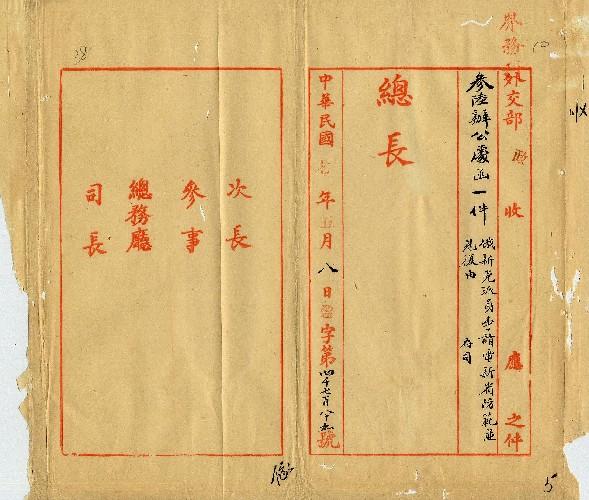 界務
外交部 收 應 之件
參陸辦公處函一件
俄新党派員赴 請電新省防範並
見復由
存司
總長
中華民國 七 年 五 月 八 日 字第四千七百八十九號
次長
參事
總務廳
司長
5